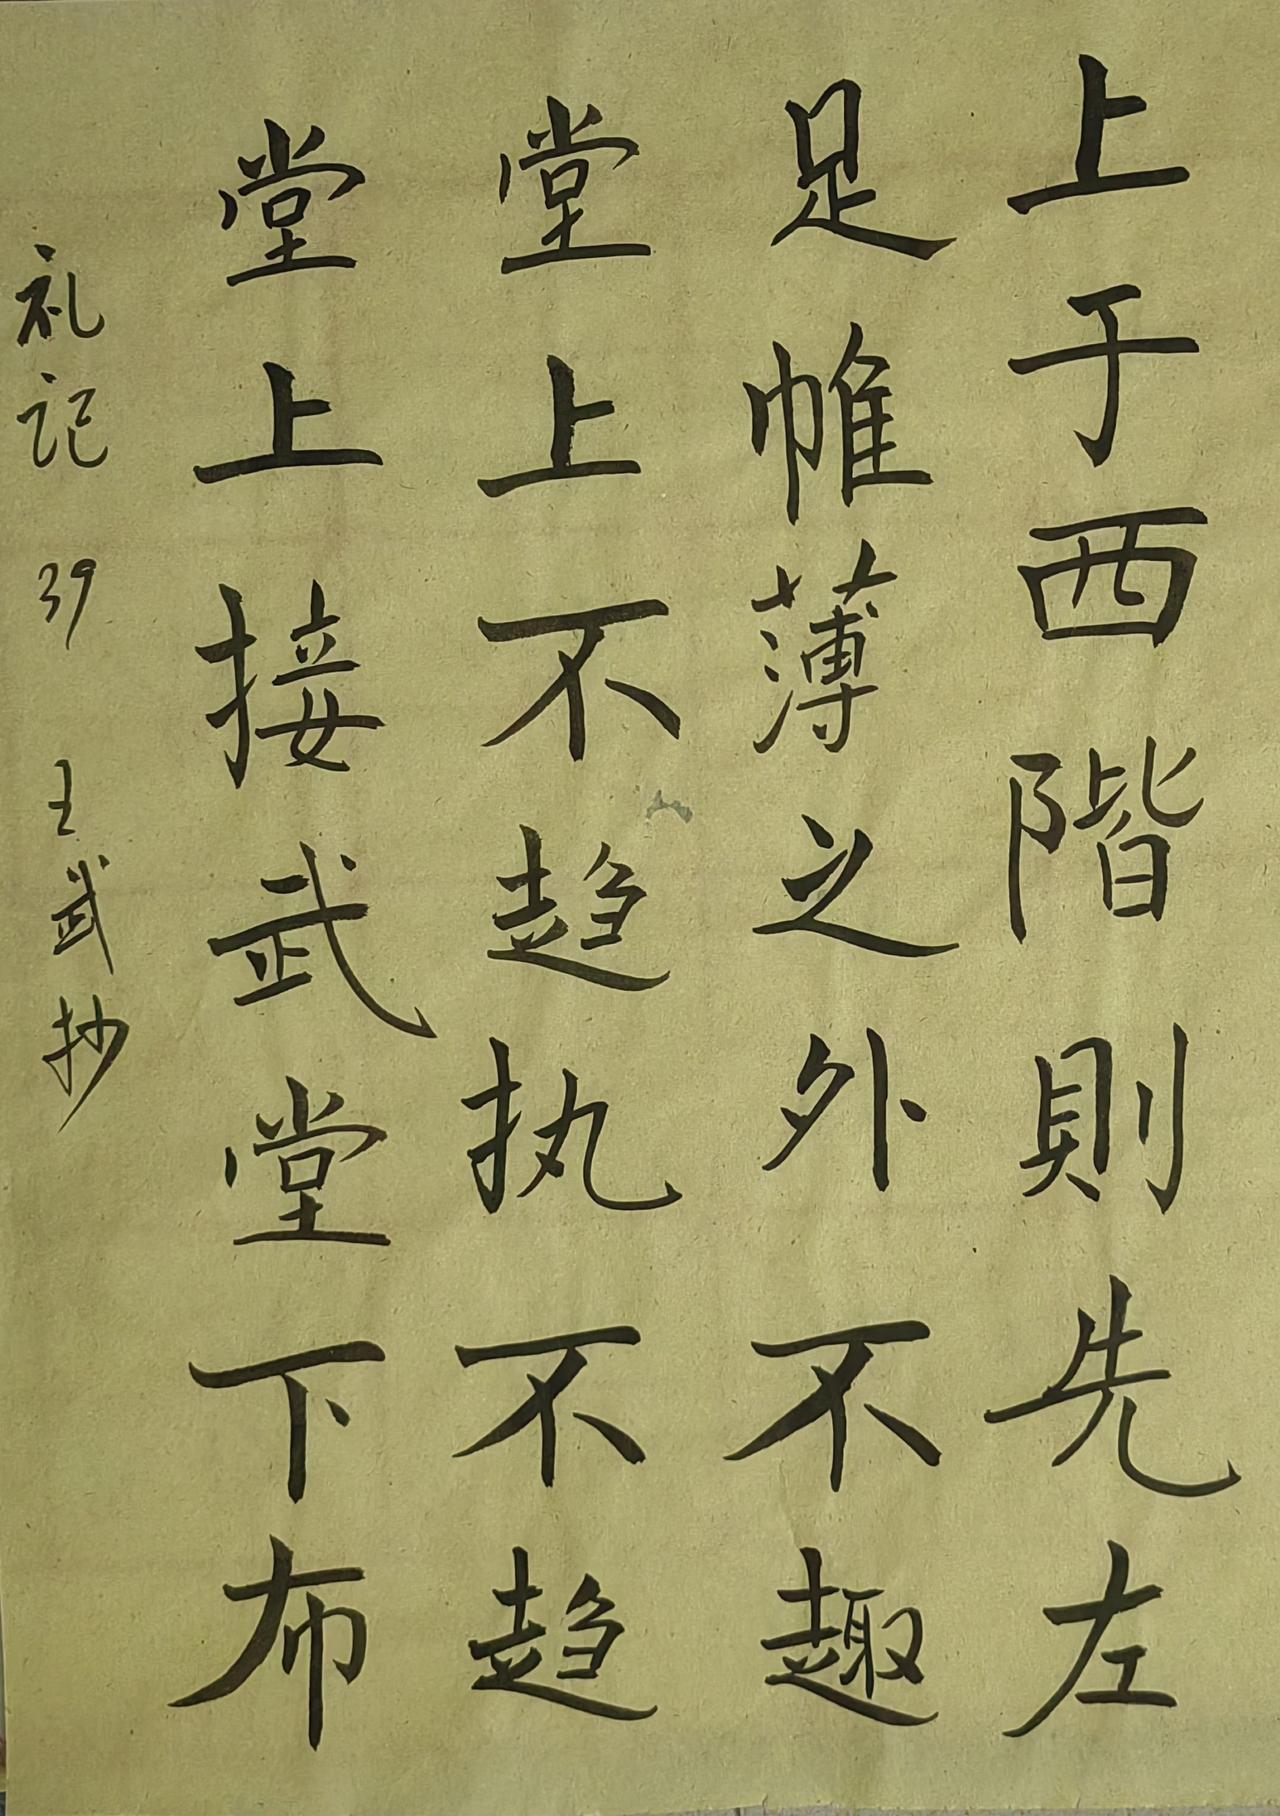 上于西階則先左
足帷薄之外不趣
堂上不趋执不趋
堂上接武堂下布
礼记 39 王武抄